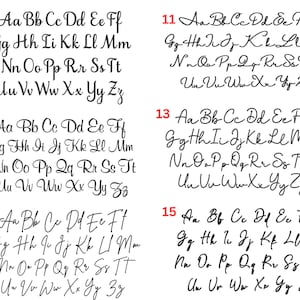 Aa Bb Cc Dd Ee Ff
Gg Hh Ii Kk Ll Mm
Nn Oo Pp Rr Ss Tt
Uu Vv Ww Xx Yy Zz
11
Aa Bb Cc Dd Ee Ff
Gg Hh Ii Jj Kk Ll Mm
Nn Oo Pp Qq Rr Ss Tt
Uu Vv Ww Xx Yy Zz
Aa Bb Cc Dd Ee Ff
Gg Hh Ii Jj Kk Ll Mm
Nn Oo Pp Qq Rr Ss Tt
Uu Vv Ww Xx Yy Zz
13
Aa Bb Cc Dd Ee Ff
Gg Hh Ii Jj Kk Ll Mm
Nn Oo Pp Qq Rr Ss Tt
Uu Vv Ww Xx Yy Zz
Aa Bb Cc Dd Ee Ff
Gg Hh Ii Jj Kk Ll Mm
Nn Oo Pp Qq Rr Ss TT
Uu Vv Ww Xx Yy Zz
15
Aa Bb Cc Dd Ee Ff
Gg Hh Ii Jj Kk Ll
Oo Pp Qq Rr Ss
Uu Vv Ww Xx Yy Zz